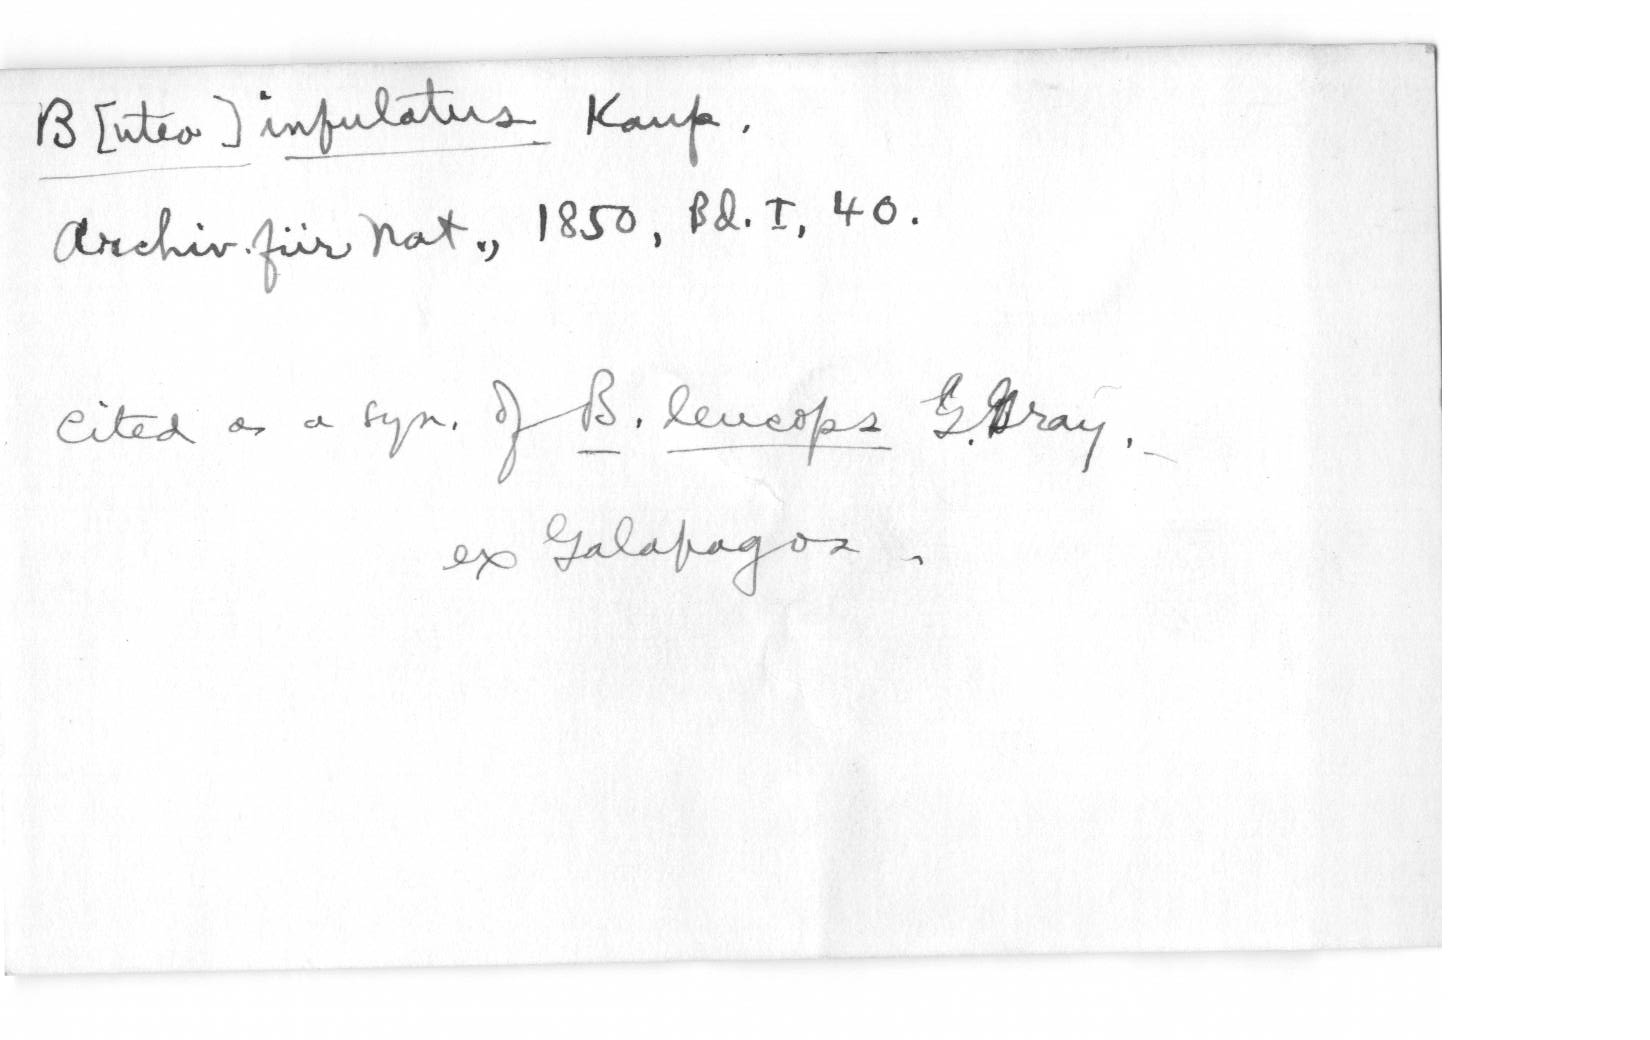 B[uteo] infulatus Kaup.
Archiv. für Nat., 1850, Bd. I, 40.
cited as a syn. of B. leucops G. Gray.
ex Galapagos.